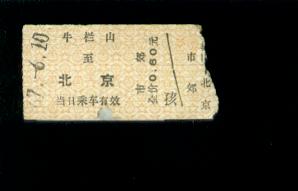 牛栏山
至
北京
当日乘车有效
市郊
全价0.60元
孩
市郊
北京